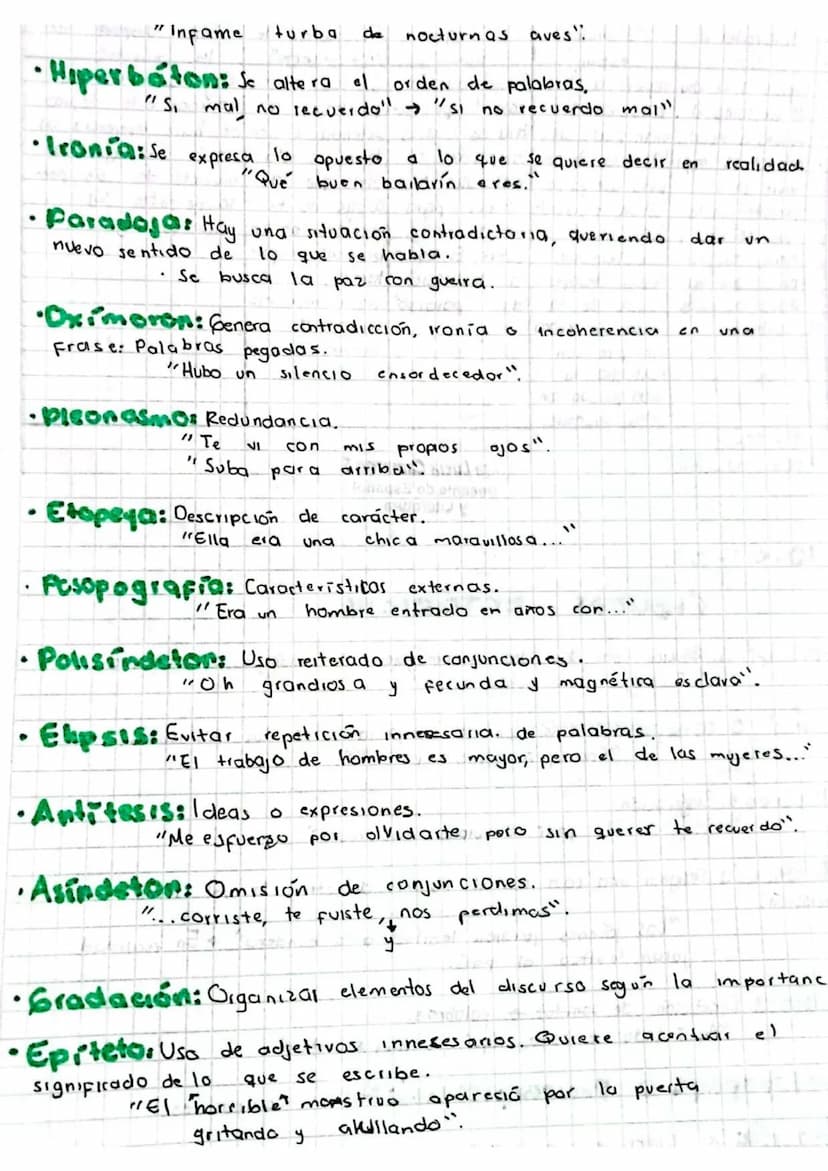 "Infame turba de nocturnas aves".
• Hiperbáton: Se altera el orden de palabras.
"Si mal no recuerdo" → "si no recuerdo mal"
• Ironía: Se expresa lo opuesto a lo que se quiere decir en realidad
"Qué buen bailarín eres."
• Paradoja: Hay una situación contradictoria, queriendo dar un
nuevo sentido de lo que se habla.
• Se busca la paz con guerra.
• Oxímoron: Genera contradicción, ironía o incoherencia en una
frase: Palabras pegadas.
"Hubo un silencio ensordecedor".
• Pleonasmo: Redundancia.
"Te vi con mis propios ojos".
"Suba para arriba".
• Etopeya: Descripción de carácter.
"Ella era una chica maravillosa..."
• Posopografía: Características externas.
"Era un hombre entrado en años con..."
• Polisíndeton: Uso reiterado de conjunciones.
"Oh grandiosa y fecunda y magnética esclava".
• Elipsis: Evitar repetición innecesaria. de palabras.
"El trabajo de hombres es mayor, pero el de las mujeres..."
• Antítesis: Ideas o expresiones.
"Me esfuerzo por olvidarte, pero sin querer te recuerdo".
• Asíndeton: Omisión de conjunciones.
"... corriste, te fuiste, nos perdimos".
y
• Gradación: Organizar elementos del discurso según la importanc
• Epíteto: Uso de adjetivos innesesarios. Quiere acentuar el
significado de lo que se escribe.
"El "horrible" monstruo aparesió por la puerta
gritando y akullando".